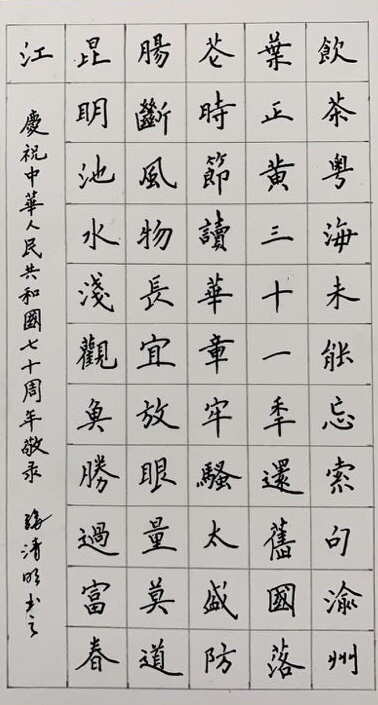 飲茶粤海未能忘索句渝州
葉正黄三十一秊還舊國落
花時節讀華章牢騷太盛防
腸斷風物長宜放眼量莫道
昆明池水淺觀魚勝過富春
江
慶祝中華人民共和國七十周年敬录 清明书之